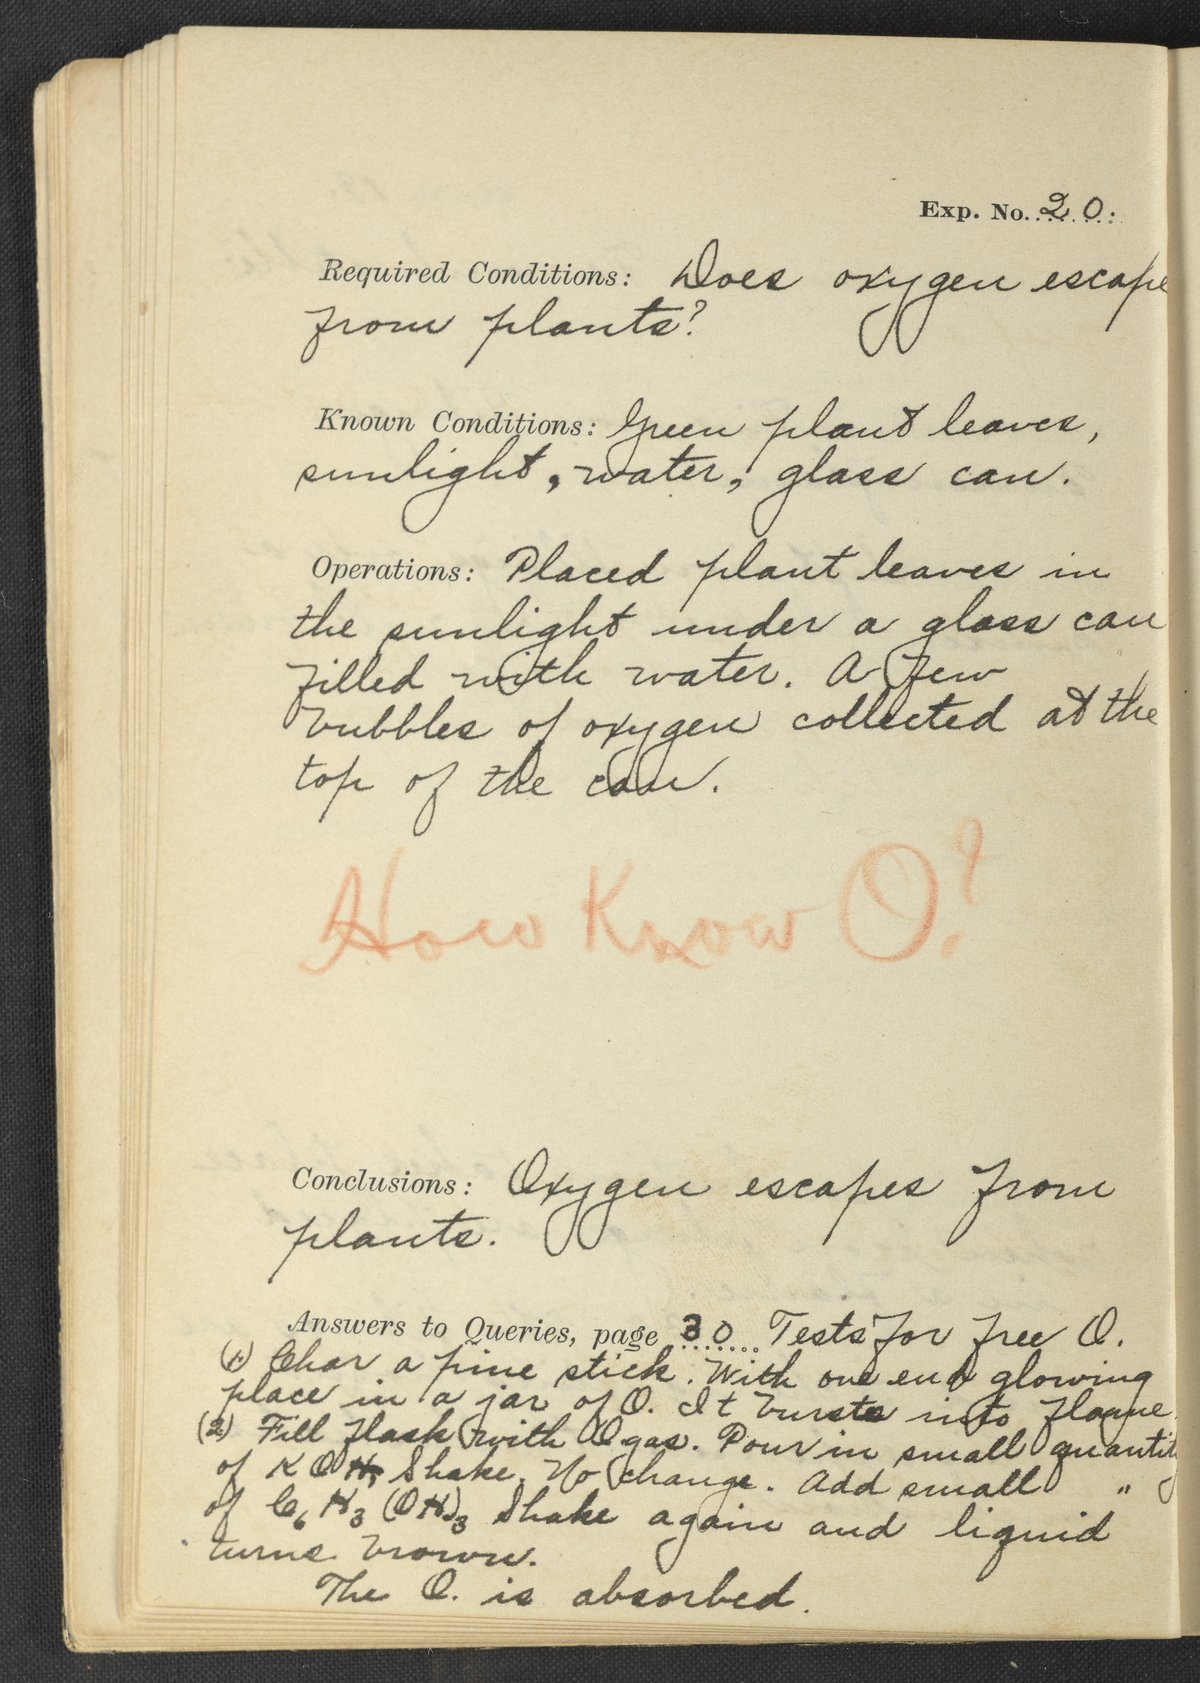 Exp. No. 20.
Required Conditions: Does oxygen escape
from plants?
Known Conditions: Green plant leaves,
sunlight, water, glass can.
Operations: Placed plant leaves in
the sunlight under a glass can
filled with water. A few
bubbles of oxygen collected at the
top of the can.
How Know O?
Conclusions: Oxygen escapes from
plants.
Answers to Queries, page 30 Tests for free O.
(1.) Char a pine stick. With one end glowing
place in a jar of O. It bursts into flame.
(2) Fill flask with O gas. Pour in small quantity
of KOH, Shake. No change. Add small "
of C6H3(OH)3 Shake again and liquid
turns brown.
The O. is absorbed.